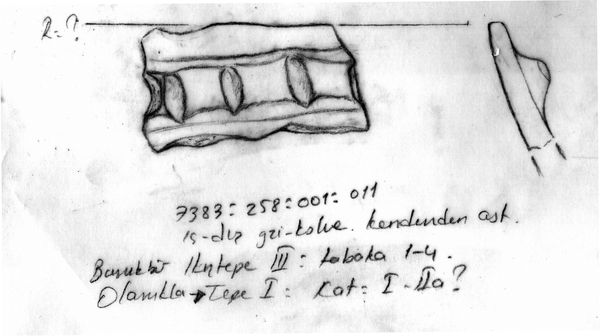 R = ?
7383 : 258 : 001 : 011
iç-dış gri-kahve. kendinden ast.
İkiztepe III : tabaka 1-4.
Olasılıkla → Tepe I : Kat : I - IIa ?